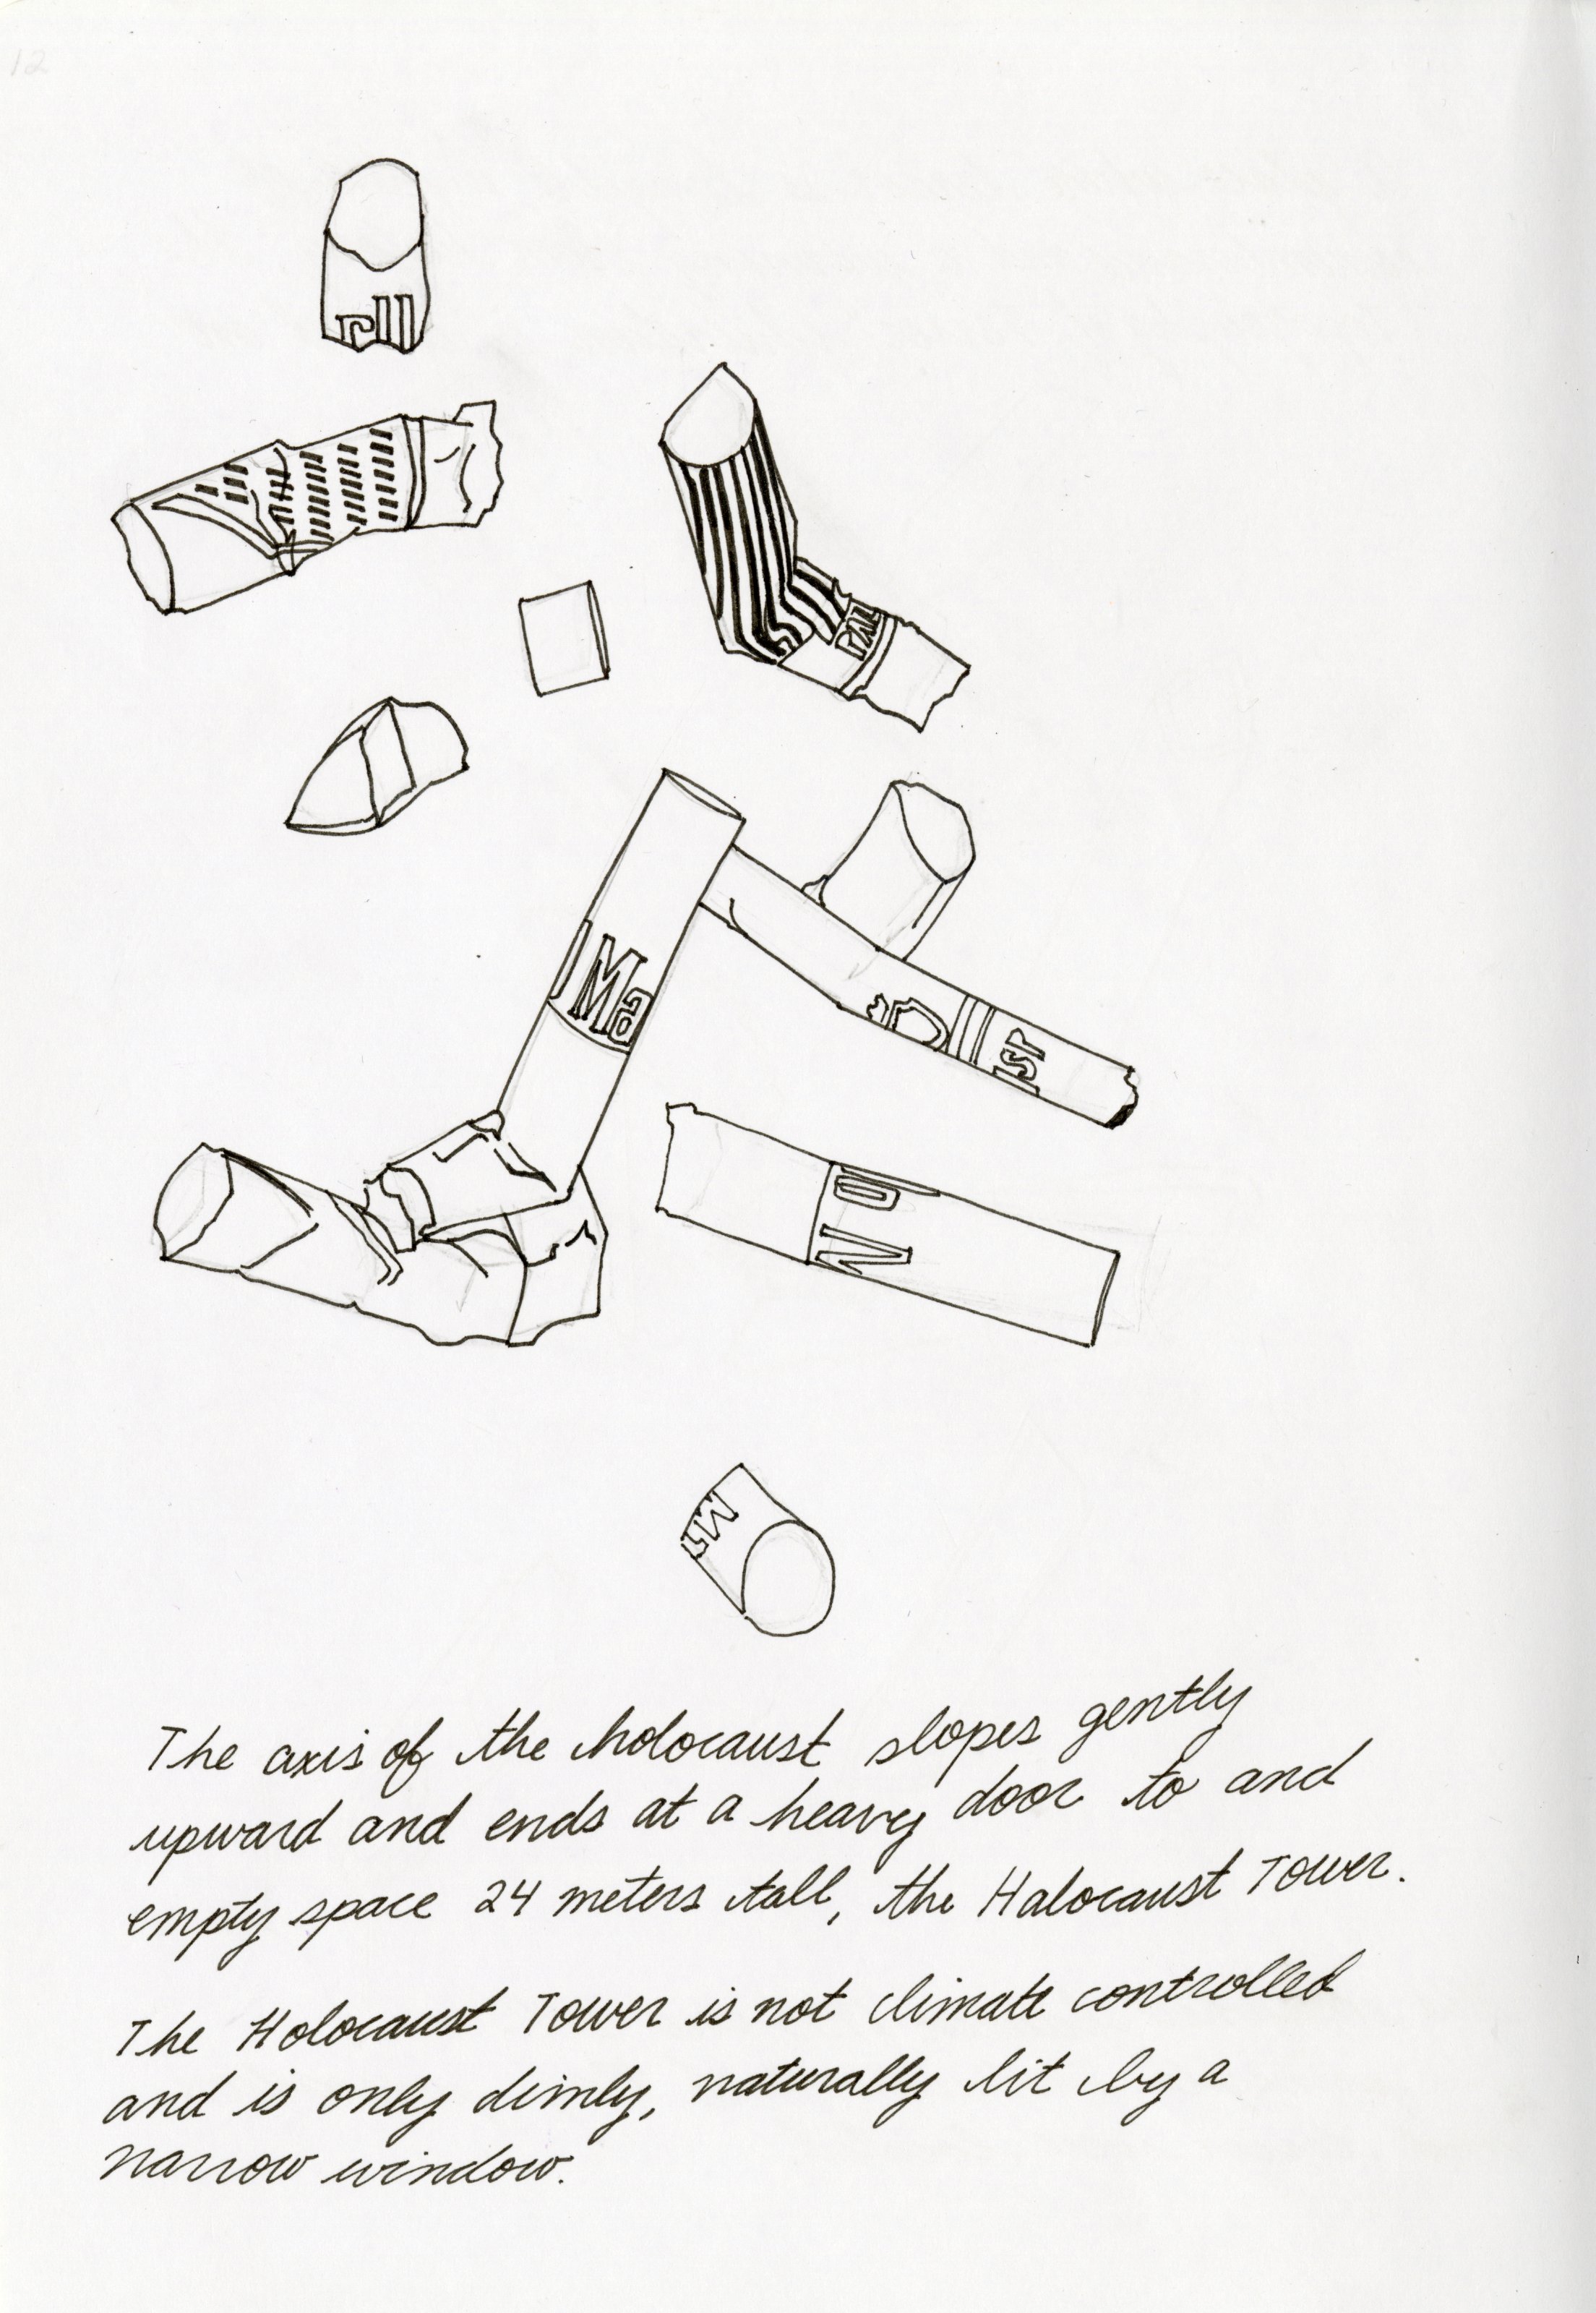 12
rell
PAL
Ma
D
ist
No
Mi
The axis of the holocaust slopes gently
upward and ends at a heavy door to and
empty space 24 meters tall, the Halocaust Tower.
The Holocaust Tower is not climate controlled
and is only dimly, naturally lit by a
narrow window.